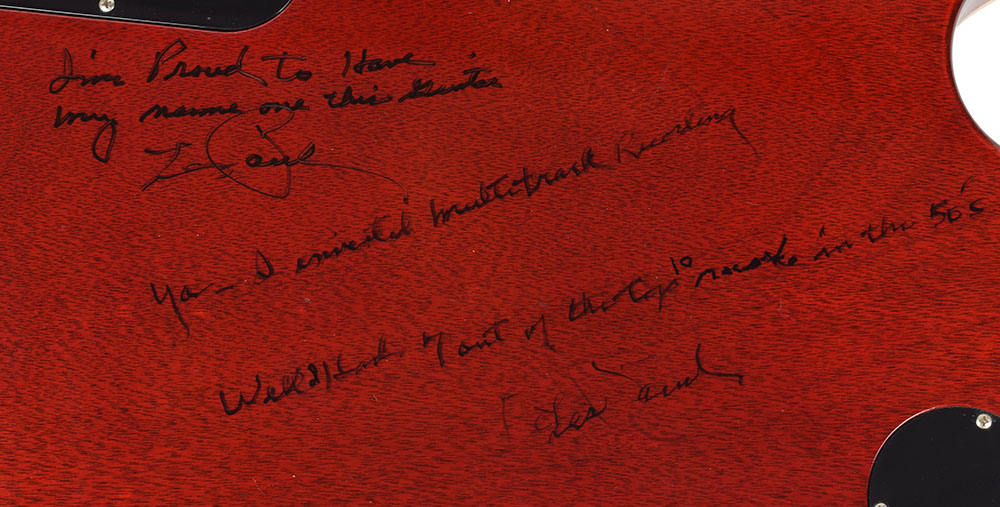 I'm Proud to Have
my name one this Guitar
Les Paul
Ya - I invented Multitrack Recording
Well I Had 7 out of the top 10 records in the 50's
Les Paul